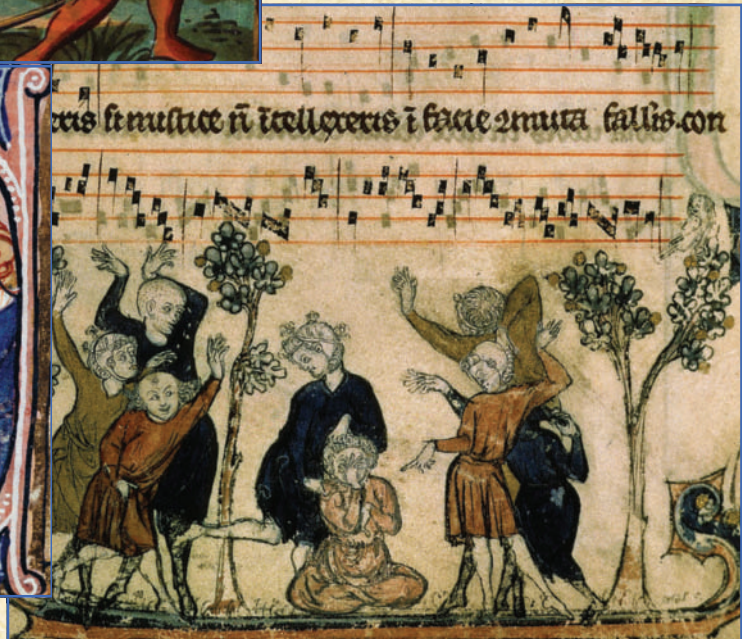 eris si mistice n̄ ītellexeris ī facie ꝯmuta fallis.con